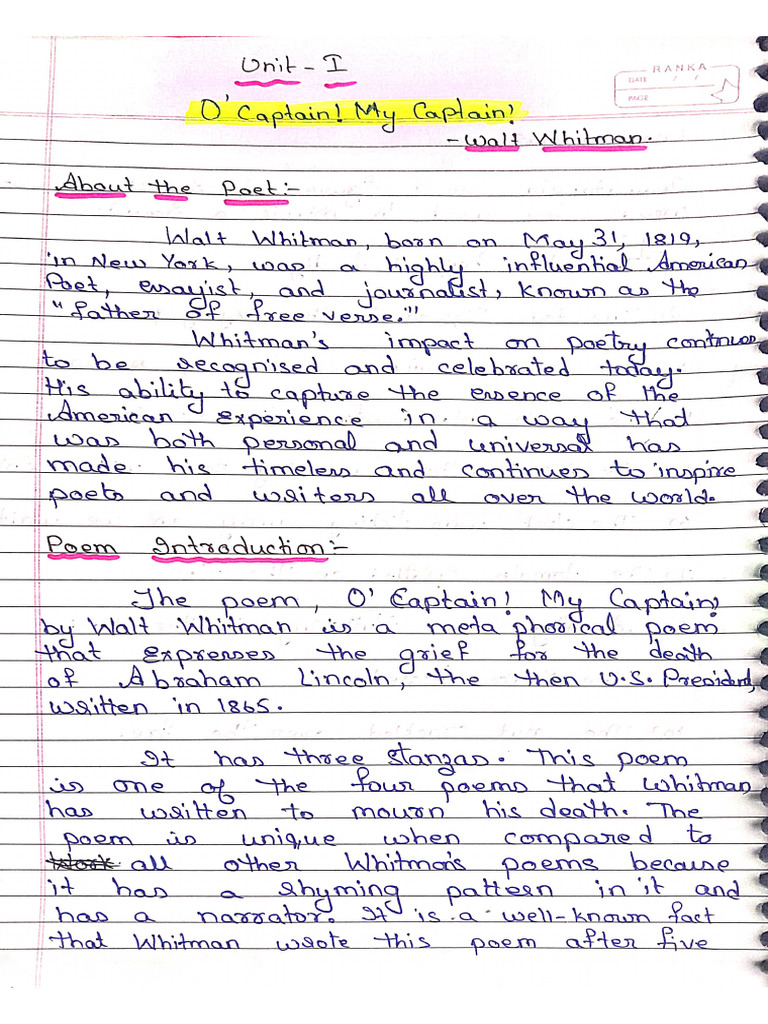 Unit - I
RANKA
DATE / /
PAGE
O' Captain! My Captain!
- Walt Whitman.
About the Poet:-
Walt Whitman, born on May 31, 1819,
in New York, was a highly influential American
Poet, essayist, and journalist, known as the
"father of free verse."
Whitman's impact on poetry continues
to be recognised and celebrated today.
His ability to capture the essence of the
American experience in a way that
was both personal and universal has
made his timeless and continues to inspire
poets and writers all over the world.
Poem Introduction:-
The poem, O' Captain! My Captain!
by Walt Whitman is a metaphorical poem
that expresses the grief for the death
of Abraham Lincoln, the then U.S. President,
written in 1865.
It has three stanzas. This poem
is one of the four poems that Whitman
has written to mourn his death. The
poem is unique when compared to
all other Whitman's poems because
it has a rhyming pattern in it and
has a narrator. It is a well-known fact
that Whitman wrote this poem after five